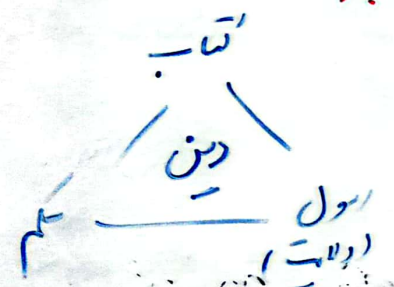 کتاب
دین
رسول
(ولایت)